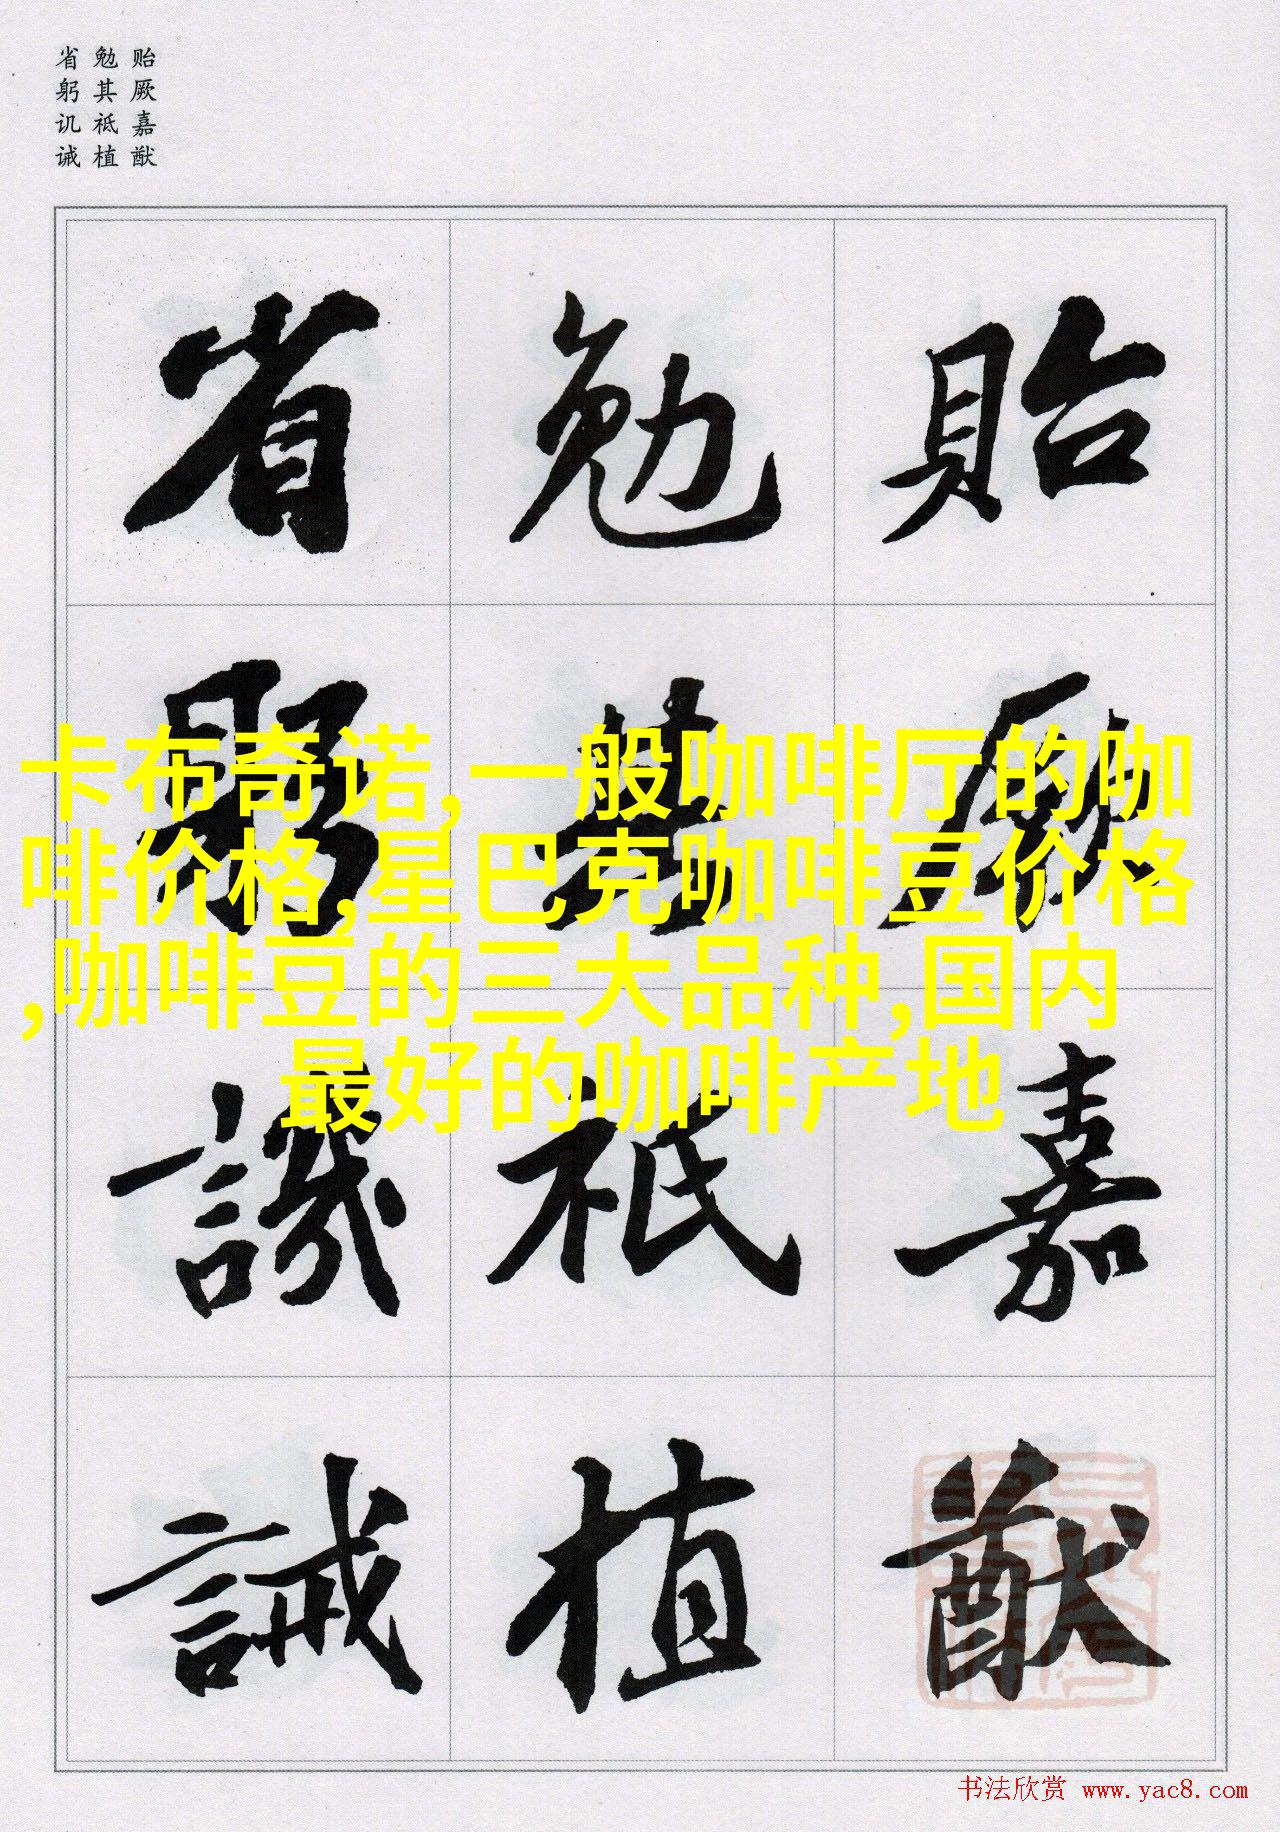 贻厥嘉猷
勉其祗植
省躬讥诫
貽厥嘉猷
勉其祇植
省躬譏誡
卡布奇诺,一般咖啡厅的咖
啡价格,星巴克咖啡豆价格
,咖啡豆的三大品种,国内
最好的咖啡产地
书法欣赏 www.yac8.com